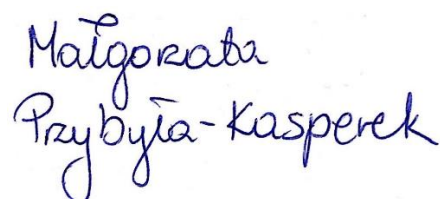 Małgorzata
Przybyła-Kasperek